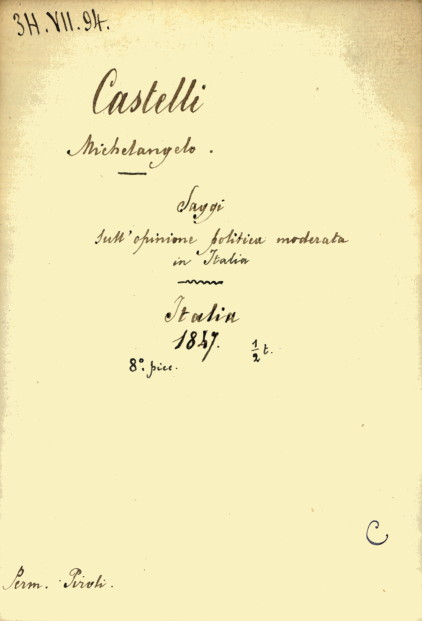 3H.VII.94.
Castelli
Michelangelo.
Saggi
sull'opinione politica moderata
in Italia
Italia
1847. 1/2 t.
8º. picc.
C
Perm. Piroli.